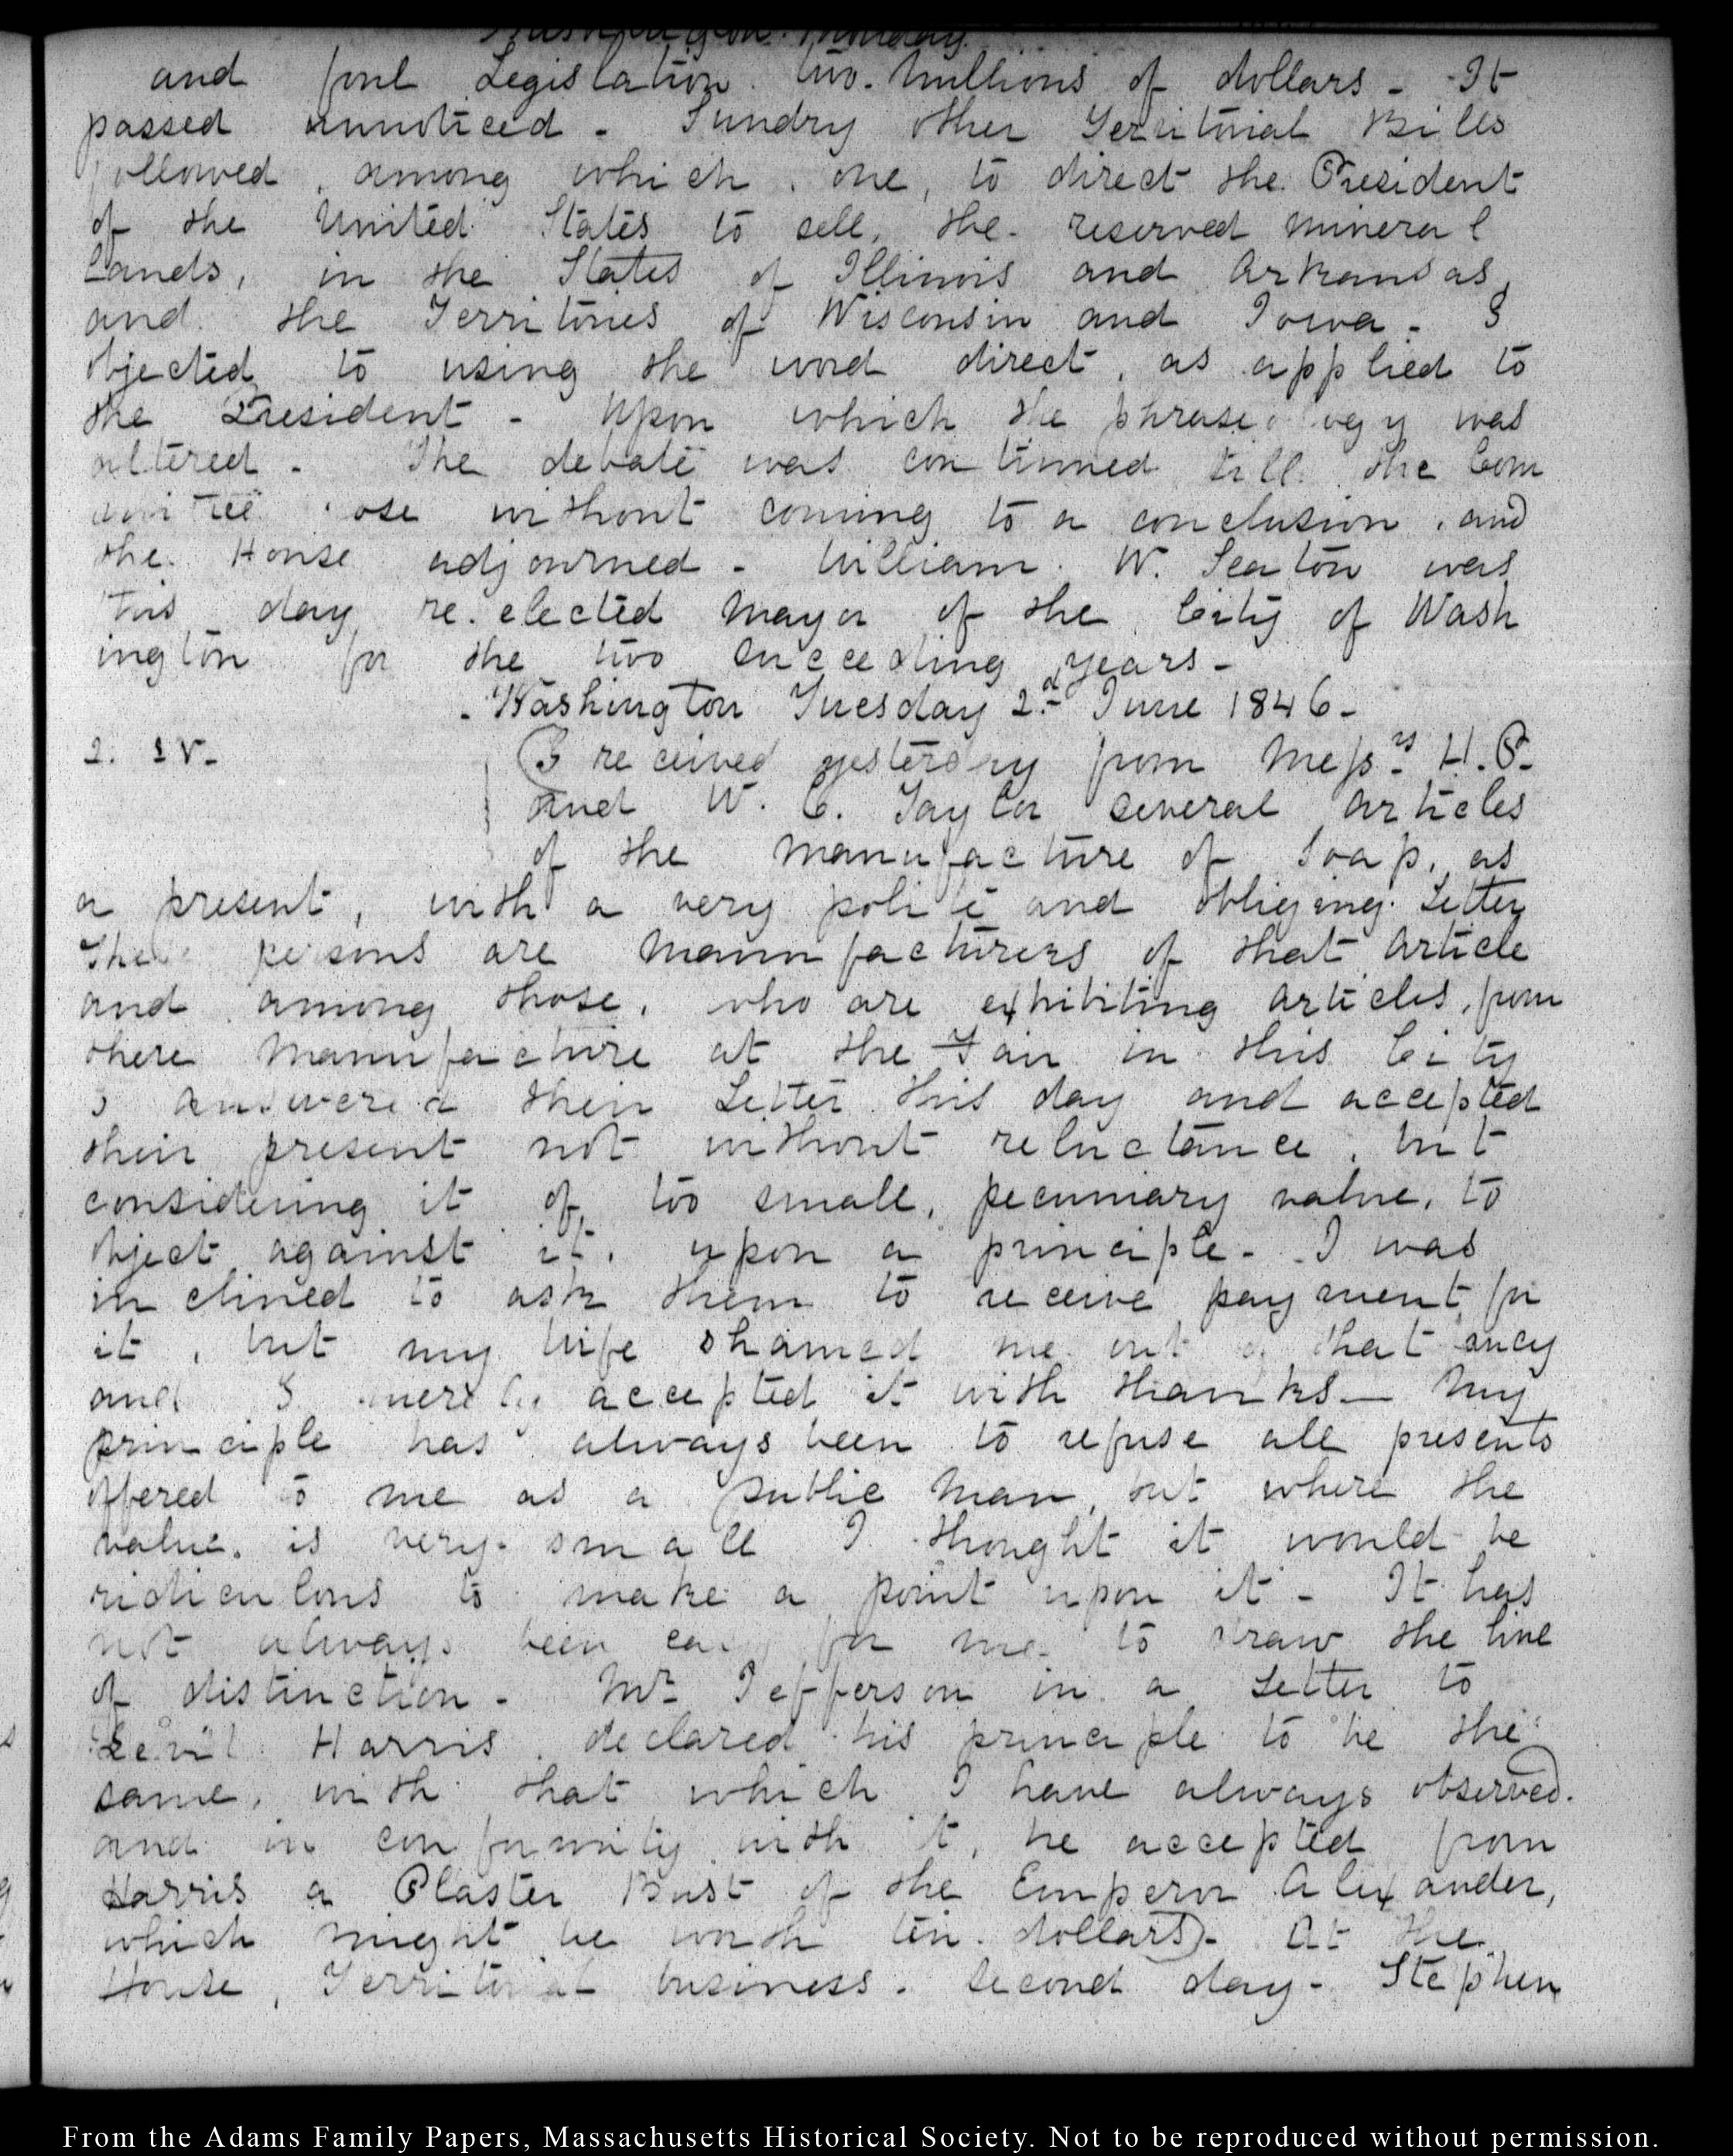 Washington. Monday.
and foul Legislation. two. millions of dollars - It
passed unnoticed - Sundry other Territorial Bills
followed, among which, one, to direct the President
of the United States to sell, the reserved mineral
Lands, in the States of Illinois and Arkansas,
and the Territories of Wisconsin and Iowa - I
objected to using the word direct, as applied to
the President - Upon which the phraseology was
altered - The debate was continued till the Com
mittee rose without coming to a conclusion, and
the House adjourned - William W. Seaton was
this day re.elected Mayor of the City of Wash
ington for the two succeeding years -
- Washington Tuesday 2d June 1846 -
2. IV-
I received yesterday from Messrs H. P.
and W. C. Taylor several articles
of the manufacture of Soap, as
a present, with a very polite and obliging Letter
These persons are manufacturers of that article
and among those, who are exhibiting articles, from
there manufacture at the Fair in this City
I answered their Letter this day and accepted
their present not without reluctance, but
considering it of too small, pecuniary value, to
object against it, upon a principle - I was
inclined to ask them to receive payment for
it, but my wife shamed me out of that fancy
and I merely accepted it with thanks - My
principle has always been to refuse all presents
offered to me as a public man, but where the
value. is very small I thought it would be
ridiculous to make a point upon it - It has
not always been easy for me to draw the line
of distinction - Mr Jefferson in a Letter to
Levitt Harris, declared his principle to be the
same, with that which I have always observed.
and in conformity with it, he accepted from
Harris a Plaster Bust of the Emperor Alexander,
which might be worth ten dollars) - At the
House, Territorial business. second day - Stephen
From the Adams Family Papers, Massachusetts Historical Society. Not to be reproduced without permission.